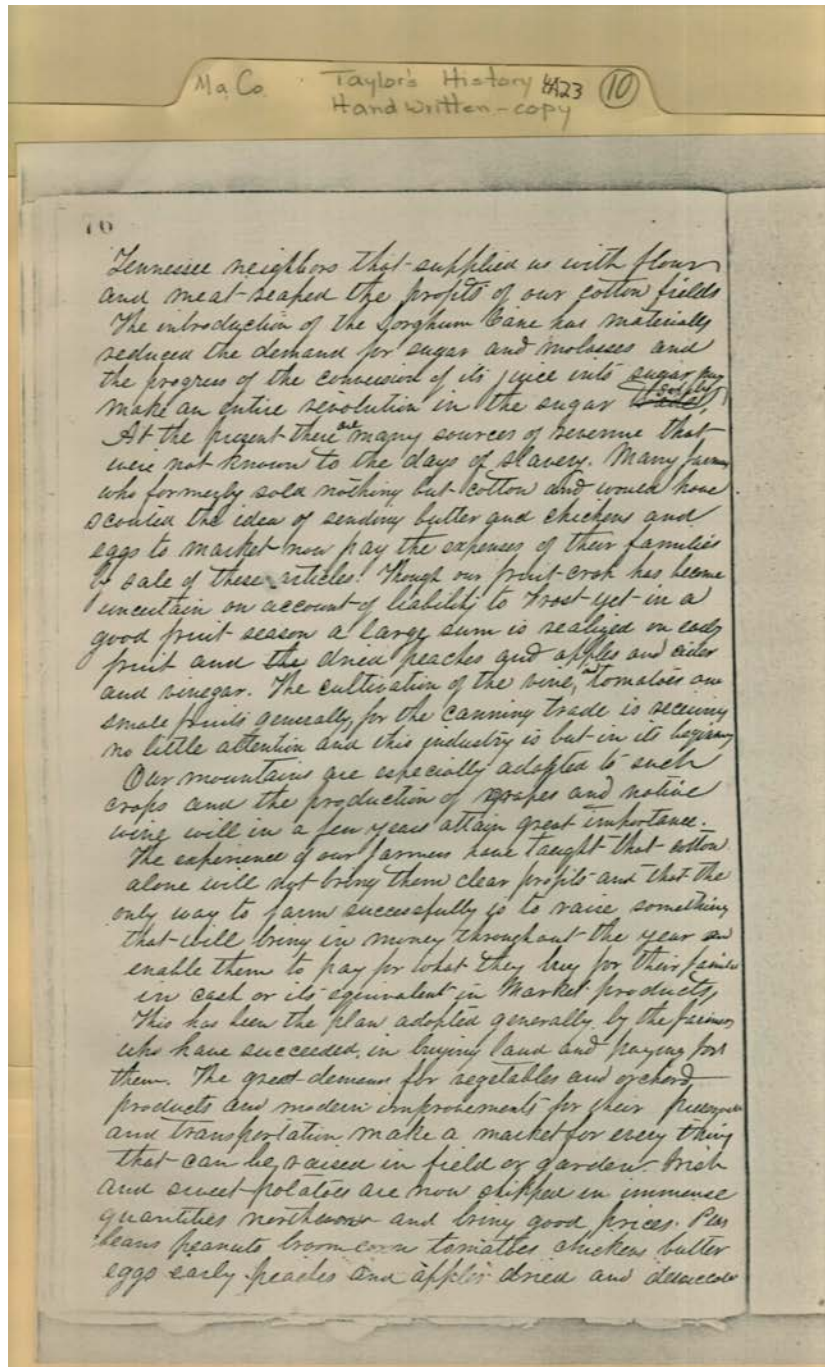 Ma Co. Taylor's History 4A23 10
Handwritten - copy
10
Tennessee neighbors that supplied us with flour
and meat reaped the profits of our cotton fields
The introduction of the Sorghum Cane has materially
reduced the demand for sugar and molasses and
the progress of the conversion of its juice into sugar may
make an entire revolution in the sugar
At the present there are many sources of revenue that
were not known to the days of slavery. Many farmers
who formerly sold nothing but cotton and would have
scouted the idea of sending butter and chickens and
eggs to market now pay the expenses of their families
by sale of these articles. Though our fruit crop has become
uncertain on account of liability to frost yet in a
good fruit season a large sum is realized on early
fruit and the dried peaches and apples and cider
and vinegar. The cultivation of the vine, tomatoes and
small fruits generally, for the canning trade is receiving
no little attention and this industry is but in its beginning
Our mountains are especially adapted to such
crops and the production of grapes and native
wine will in a few years attain great importance.
The experience of our farmers have taught that cotton
alone will not bring them clear profits and that the
only way to farm successfully is to raise something
that will bring in money throughout the year and
enable them to pay for what they buy for their families
in cash or its equivalent in Market products,
This has been the plan adopted generally by the farmers
who have succeeded in buying land and paying for
them. The great demand for vegetables and orchard
products and modern improvements for their
and transportation make a market for every thing
that can be raised in field or garden Irish
and sweet potatoes are now shipped in immense
quantities northward and bring good prices. Peas
beans peanuts broom corn tomatoes chickens butter
eggs early peaches and apples dried and